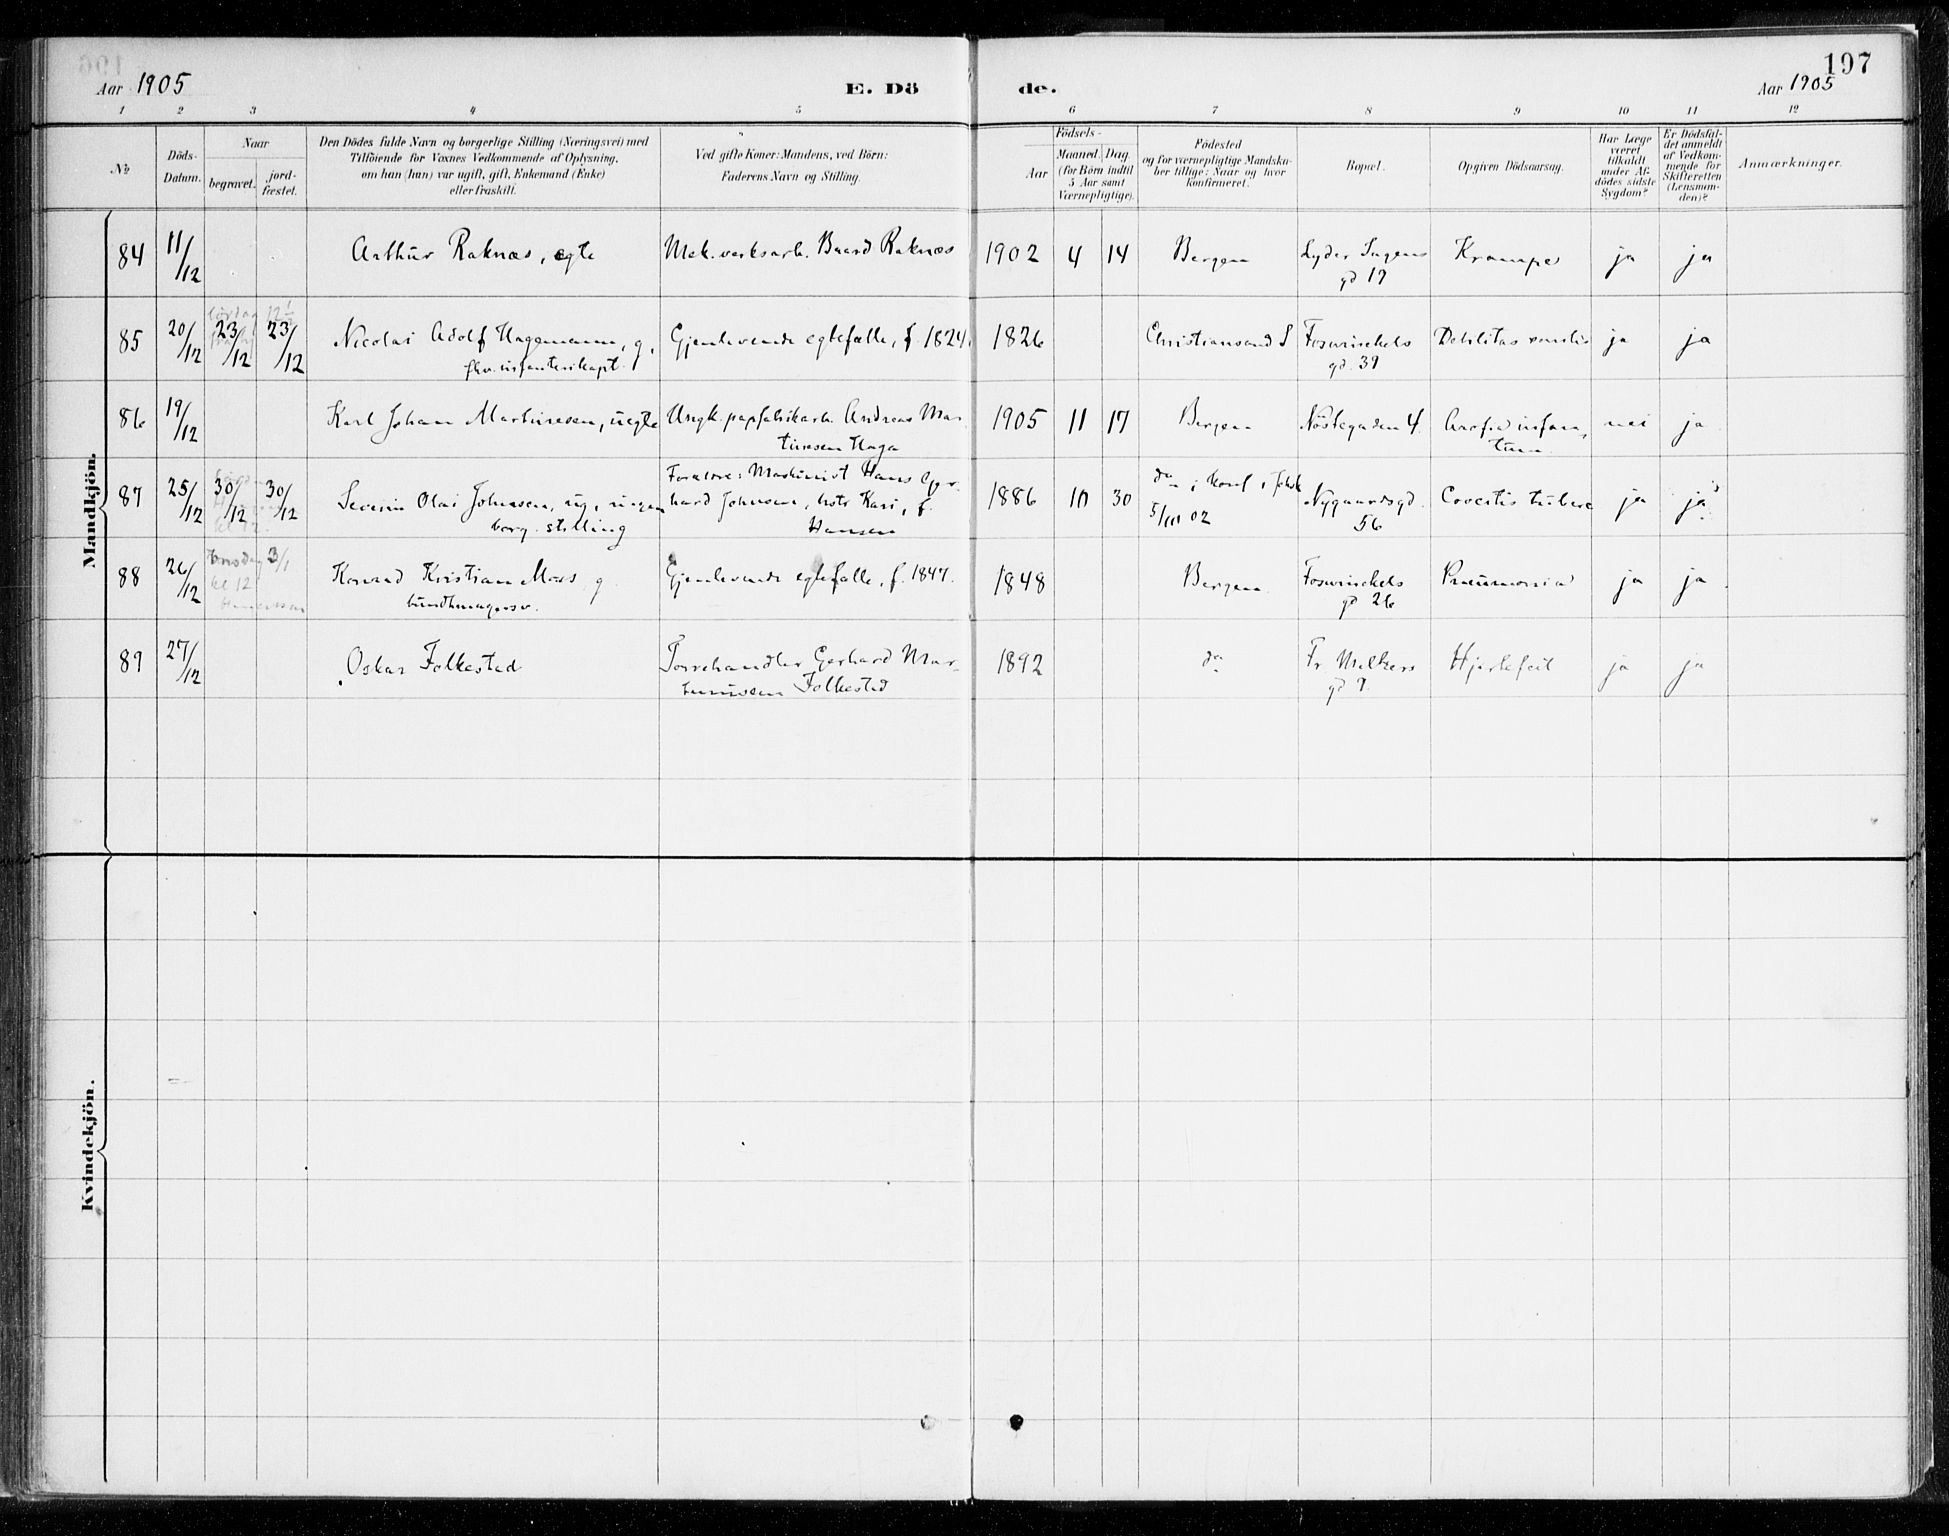 197
Aar 1905
E. Döde.
Aar 1905
1 2 3 4 5 6 7 8 9 10 11 12
No
Döds-Datum.
Naar
begravet.
jord-fæstet.
Den Dödes fulde Navn og borgerlige Stilling (Næringsvei) med
Tilföiende for Voxnes Vedkommende af Oplysning,
om han (hun) var ugift, gift, Enkemand (Enke)
eller fraskilt.
Ved gifte Koner: Mandens, ved Börn:
Faderens Navn og Stilling.
Födsels-
Aar
Maaned.
Dag.
(for Börn indtil
5 Aar samt
Værnepligtige).
Födested
og for værnepligtige Mandskaber tillige: Naar og hvor
konfirmeret.
Bopæl.
Opgiven Dödsaarsag.
Har Læge
været
tilkaldt
under Afdödes sidste
Sygdom?
Er Dödsfaldet anmeldt
af Vedkommende for
Skifteretten
(Lensmanden)?
Anmærkninger.
Mandkjön.
84 11/12 Arthur Raknæs, egte Mek. verksarb. Baard Raknæs 1902 4 14 Bergen Lyder Sagens gd 19 Krampe ja ja
85 20/12 23/12 23/12 Nicolai Adolf Hagemann, g. fhv. infanterikapt. Gjenlevende egtefælle, f. 1824. 1826 Christiansand S Fosswinckels gd. 39 Debilitas senilis ja ja
86 19/12 Karl Johan Martinesen, uegte Ungk. papfabrikarb. Andreas Martinesen Haga 1905 11 17 Bergen Nöstegaden 4. infantum nei ja
87 25/12 30/12 30/12 Severin Olai Johnsen, ug., ingen borg. stilling Forældre: Maskinist Hans Gerhard Johnsen, hstr Kari, f. Hansen 1886 10 30 do 5/10 02 Nygaardsgd. 56 ja ja
88 26/12 Torsdag kl 12 3/1 Konrad Kristian Moss g bundtmagersv. Gjenlevende egtefælle, f. 1847. 1848 Bergen. Fosswinckels gd 26 Pneumonia ja ja
89 27/12 Oskar Folkestad Torvehandler Gerhard Martiniusen Folkestad 1892 do Fr. Meltzers gd 9. Hjertefeil ja ja
Kvindekjön.